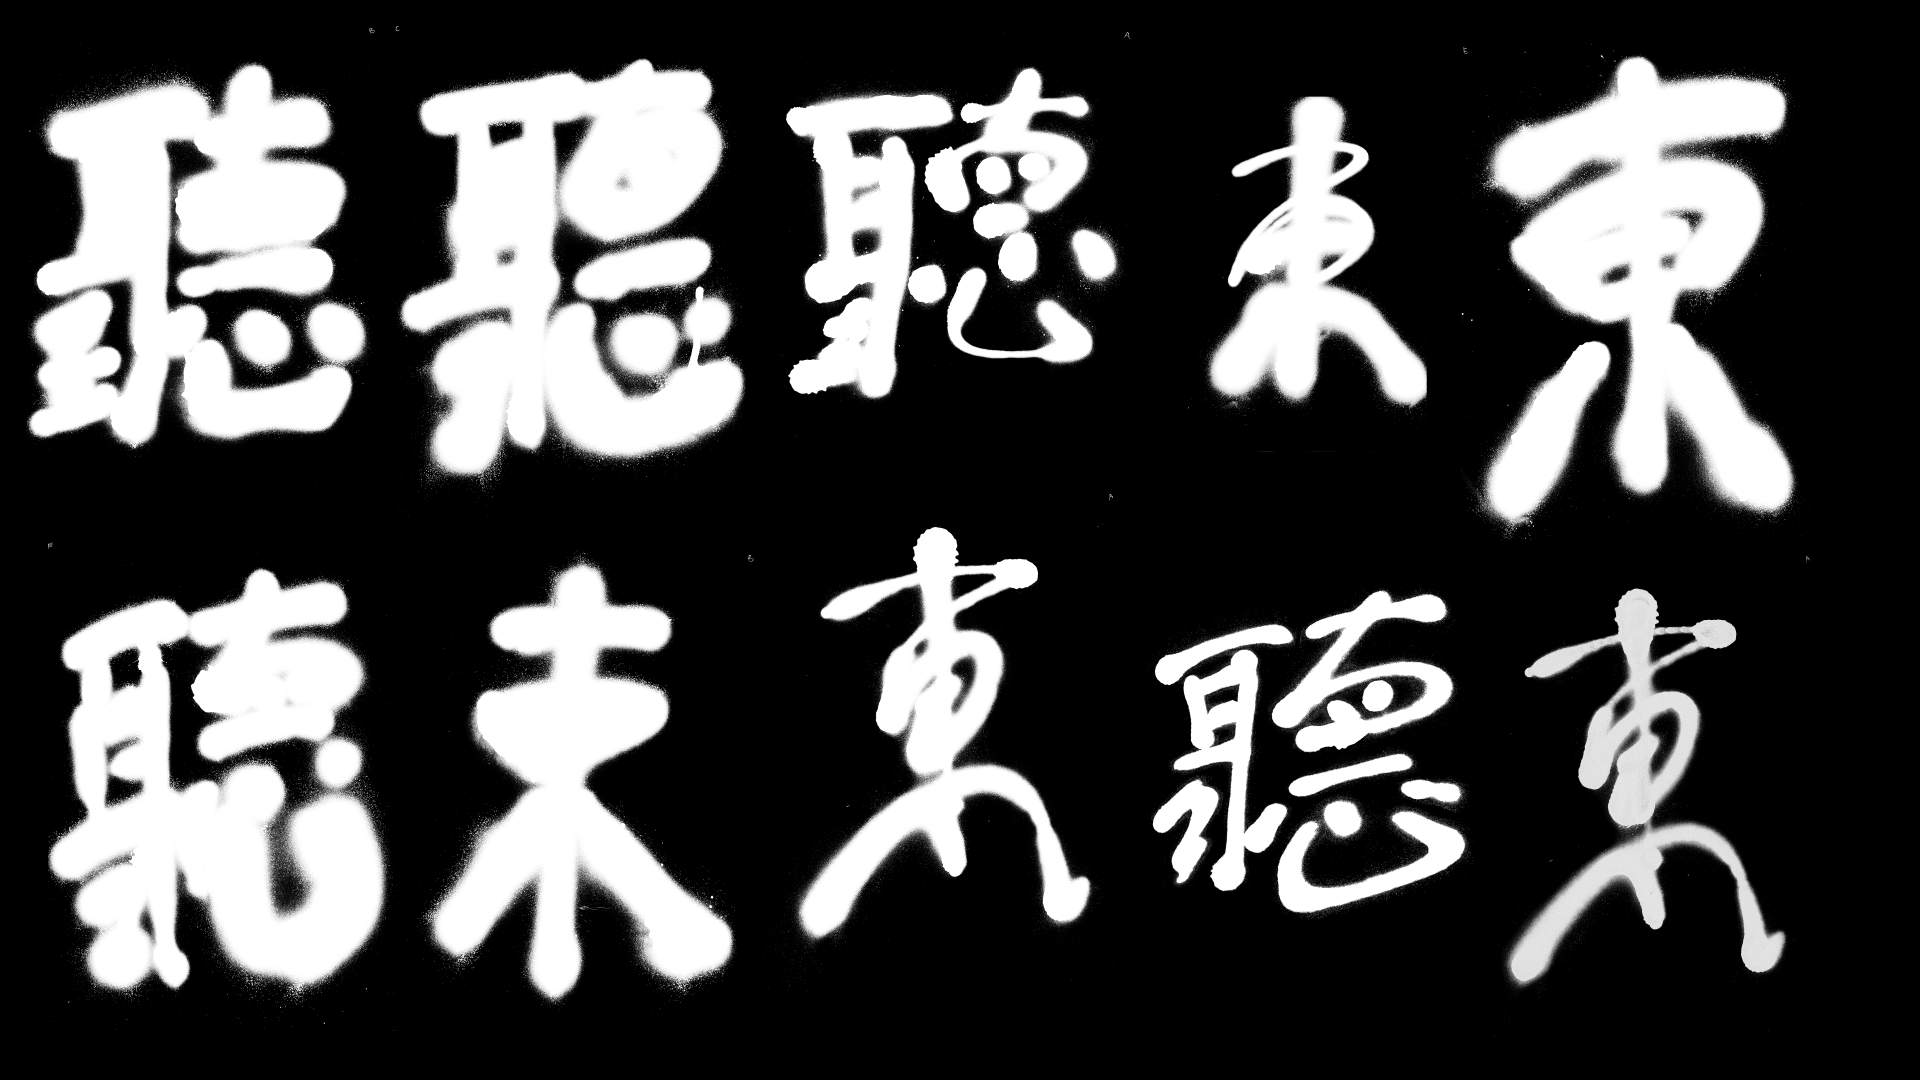 聽聽聽東東
聽東東聽東